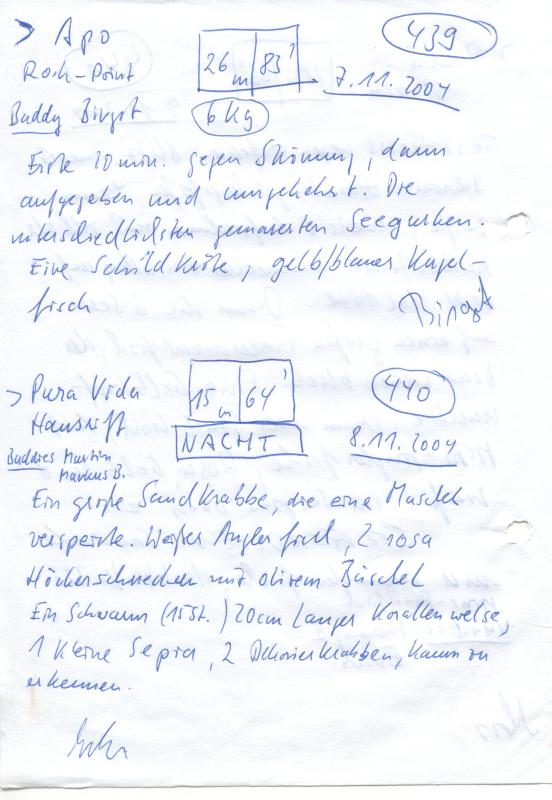 > Apo
Rock-Point
26m 83'
439
7.11.2004
Buddy Birgit
6kg
Erste 20 min. gegen Strömung, dann
aufgegeben und umgekehrt. Die
unterschiedlichsten gemaserten Seegurken.
Eine Schildkröte, gelb/blauer Kugel-
fisch
Birgit
> Pura Vida
Hausriff
15m 64'
NACHT
440
8.11.2004
Buddies Martin
Markus B.
Ein große Sandkrabbe, die eine Muschel
verspeiste. Weißer Anglerfisch, 2 rosa
Höckerschnecken mit olivem Büschel
Ein Schwarm (15St.) 20cm langer Korallenwelse,
1 kleine Sepia, 2 Dekorierkrabben, kaum zu
erkennen.